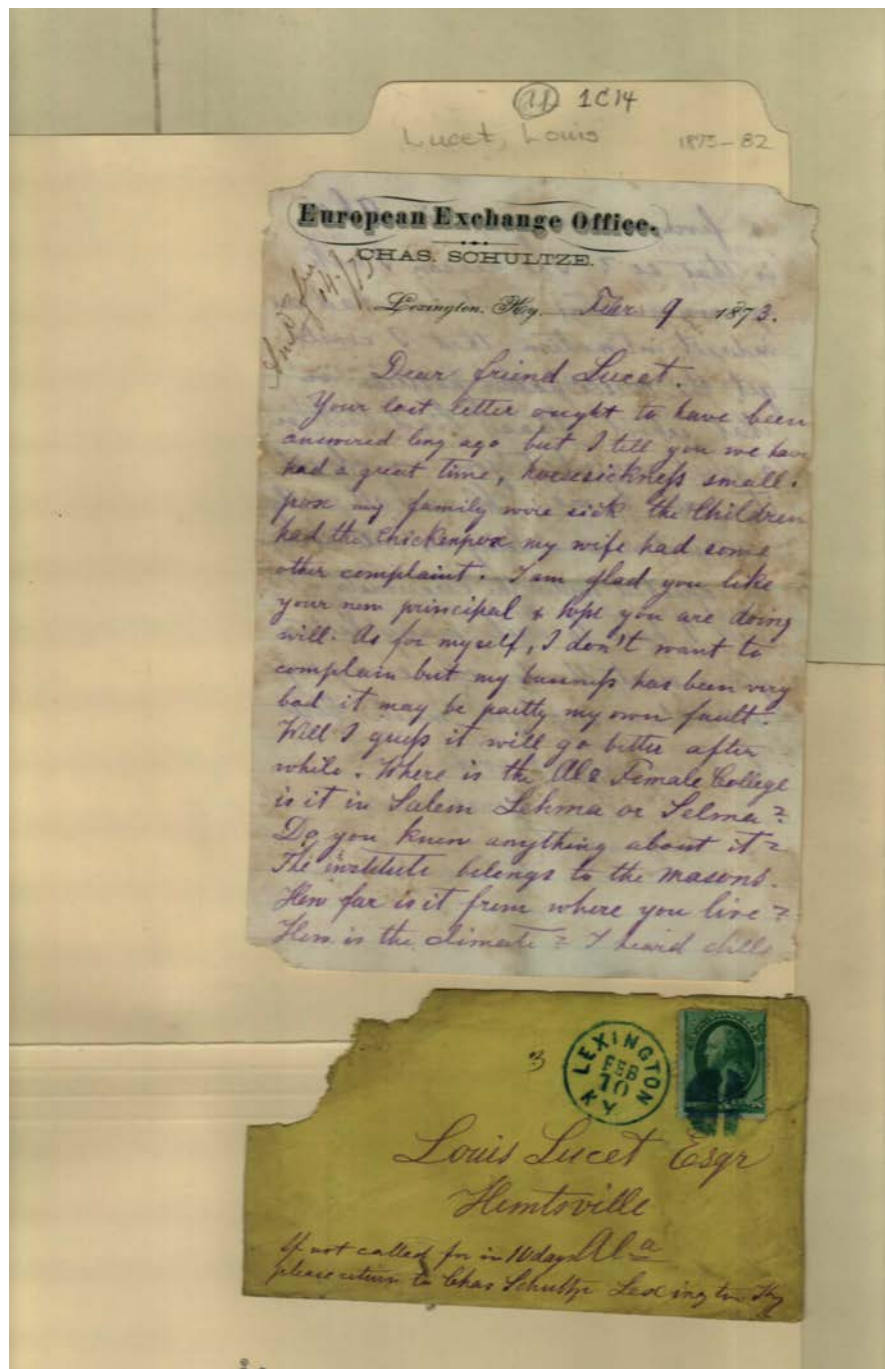 1C14
Lucet, Louis 1873-82
European Exchange Office.
CHAS. SCHULTZE.
Lexington, Ky. Febr 9 1873.
Dear friend Lucet.
Your last letter ought to have been
answered long ago but I tell you we have
had a great time, horsesickness small.
pox my family were sick the Children
had the Chickenpox my wife had some
other complaint. I am glad you like
your new principal & hope you are doing
well. As for myself, I don't want to
complain but my business has been very
bad it may be partly my own fault.
Well I guess it will go better after
while. Where is the Ala Female College
is it in Salem Lehma or Selma?
Do you know anything about it?
The institute belongs to the masons.
How far is it from where you live?
How is the climate? I heard chills
3
LEXINGTON
FEB
10
KY
Louis Lucet Esqr
Huntsville
Ala
If not called for in 10 days
please return to Chas Schultze Lexington Ky